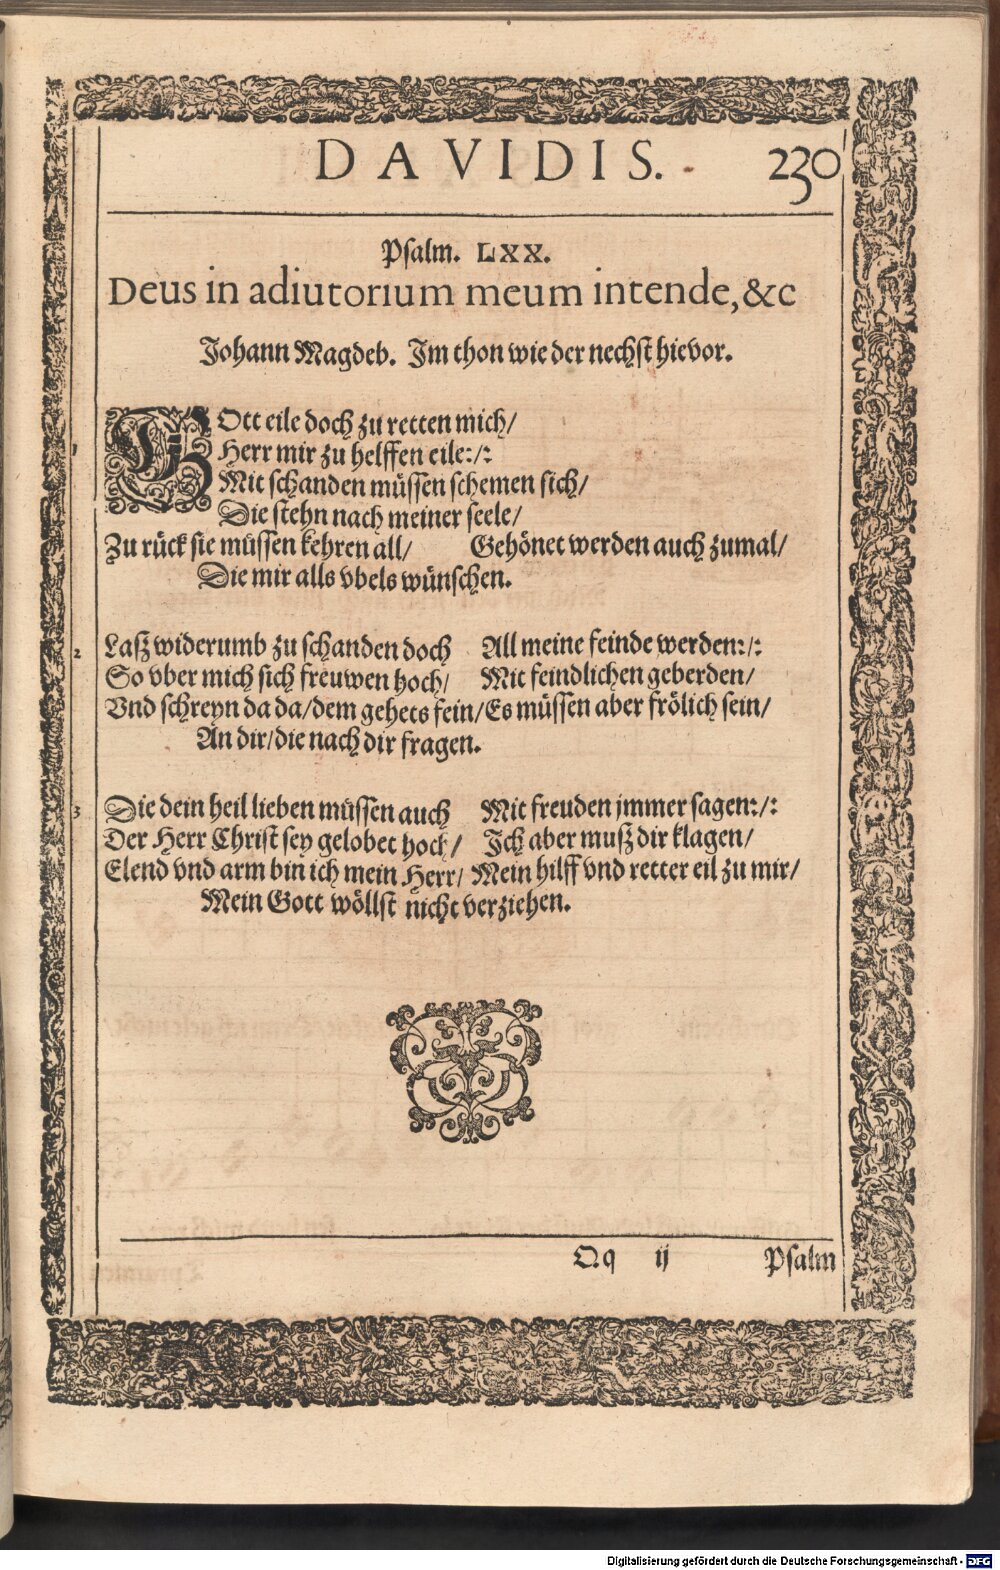 DAVIDIS. 230
Psalm. LXX.
Deus in adiutorium meum intende, &c
Johann Magdeb. Im thon wie der nechst hievor.
1 GOtt eile doch zu retten mich/
Herr mir zu helffen eile:/:
Mit schanden müssen schemen sich/
Die stehn nach meiner seele/
Zu rück sie müssen kehren all/ Gehönet werden auch zumal/
Die mir alls vbels wünschen.
2 Lasz widerumb zu schanden doch All meine feinde werden:/:
So vber mich sich freuwen hoch/ Mit feindlichen geberden/
Vnd schreyn da da/dem gehets fein/Es müssen aber frölich sein/
An dir/die nach dir fragen.
3 Die dein heil lieben müssen auch Mit freuden jmmer sagen:/:
Der Herr Christ sey gelobet hoch/ Ich aber musz dir klagen/
Elend vnd arm bin ich mein Herr/ Mein hilff vnd retter eil zu mir/
Mein Gott wöllst nicht verziehen.
Qq ij Psalm
Digitalisierung gefördert durch die Deutsche Forschungsgemeinschaft - DFG